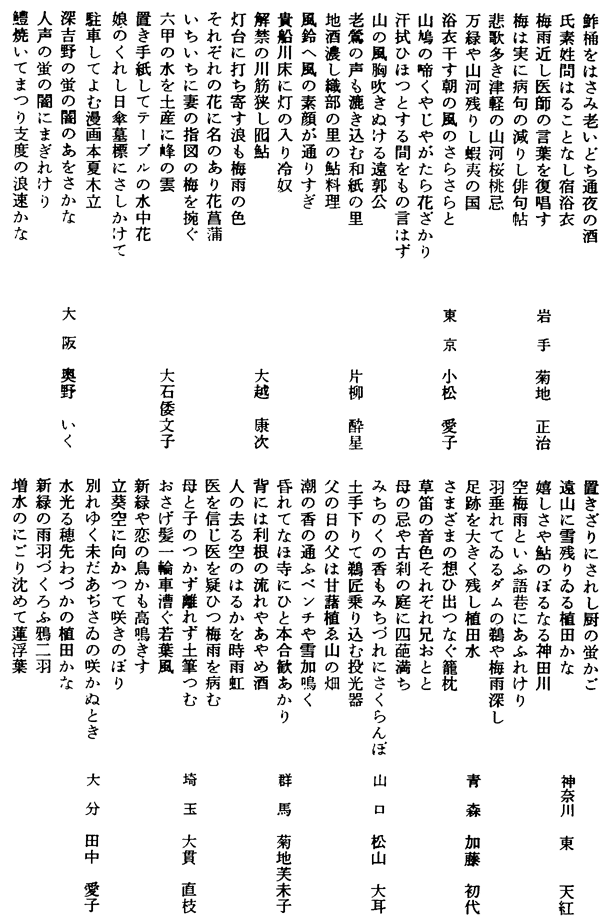 鮓桶をはさみ老いどち通夜の酒
氏素姓問はることなし宿浴衣
梅雨近し医師の言葉を復唱す
梅は実に病句の減りし俳句帖
岩手 菊地 正治
悲歌多き津軽の山河桜桃忌
万緑や山河残りし蝦夷の国
浴衣干す朝の風のさらさらと
山鳩の啼くやじやがたら花ざかり
東京 小松 愛子
汗拭ひほつとする間をもの言はず
山の風胸吹きぬける遠郭公
老鶯の声も漉き込む和紙の里
地酒濃し織部の里の鮎料理
片柳 酔星
風鈴へ風の素顔が通りすぎ
貴船川床に灯の入り冷奴
解禁の川筋狭し囮鮎
灯台に打ち寄す浪も梅雨の色
大越 康次
それぞれの花に名のあり花菖蒲
いちいちに妻の指図の梅を捥ぐ
六甲の水を土産に峰の雲
置き手紙してテーブルの水中花
大石倭文子
娘のくれし日傘墓標にさしかけて
駐車してよむ漫画本夏木立
深吉野の蛍の闇のあをさかな
人声の蛍の闇にまぎれけり
大阪 奥野 いく
鱧焼いてまつり支度の浪速かな
置きざりにされし厨の蛍かご
遠山に雪残りゐる植田かな
嬉しさや鮎のぼるなる神田川
神奈川 東 天紅
空梅雨といふ語巷にあふれけり
羽垂れてゐるダムの鵜や梅雨深し
足跡を大きく残し植田水
さまざまの想ひ出つなぐ籠枕
青森 加藤 初代
草笛の音色それぞれ兄おとと
母の忌や古刹の庭に四葩満ち
みちのくの香もみちづれにさくらんぼ
土手下りて鵜匠乗り込む投光器
山口 松山 大耳
父の日の父は甘藷植ゑ山の畑
潮の香の通ふベンチや雪加鳴く
昏れてなほ寺にひと本合歓あかり
背には利根の流れやあやめ酒
群馬 菊地芙未子
人の去る空のはるかを時雨虹
医を信じ医を疑ひつ梅雨を病む
母と子のつかず離れず土筆つむ
おさげ髪一輪車漕ぐ若葉風
埼玉 大貫 直枝
新緑や恋の鳥かも高鳴きす
立葵空に向かつて咲きのぼり
別れゆく未だあぢさゐの咲かぬとき
水光る穂先わづかの植田かな
大分 田中 愛子
新緑の雨羽づくろふ鴉二羽
増水のにごり沈めて蓮浮葉